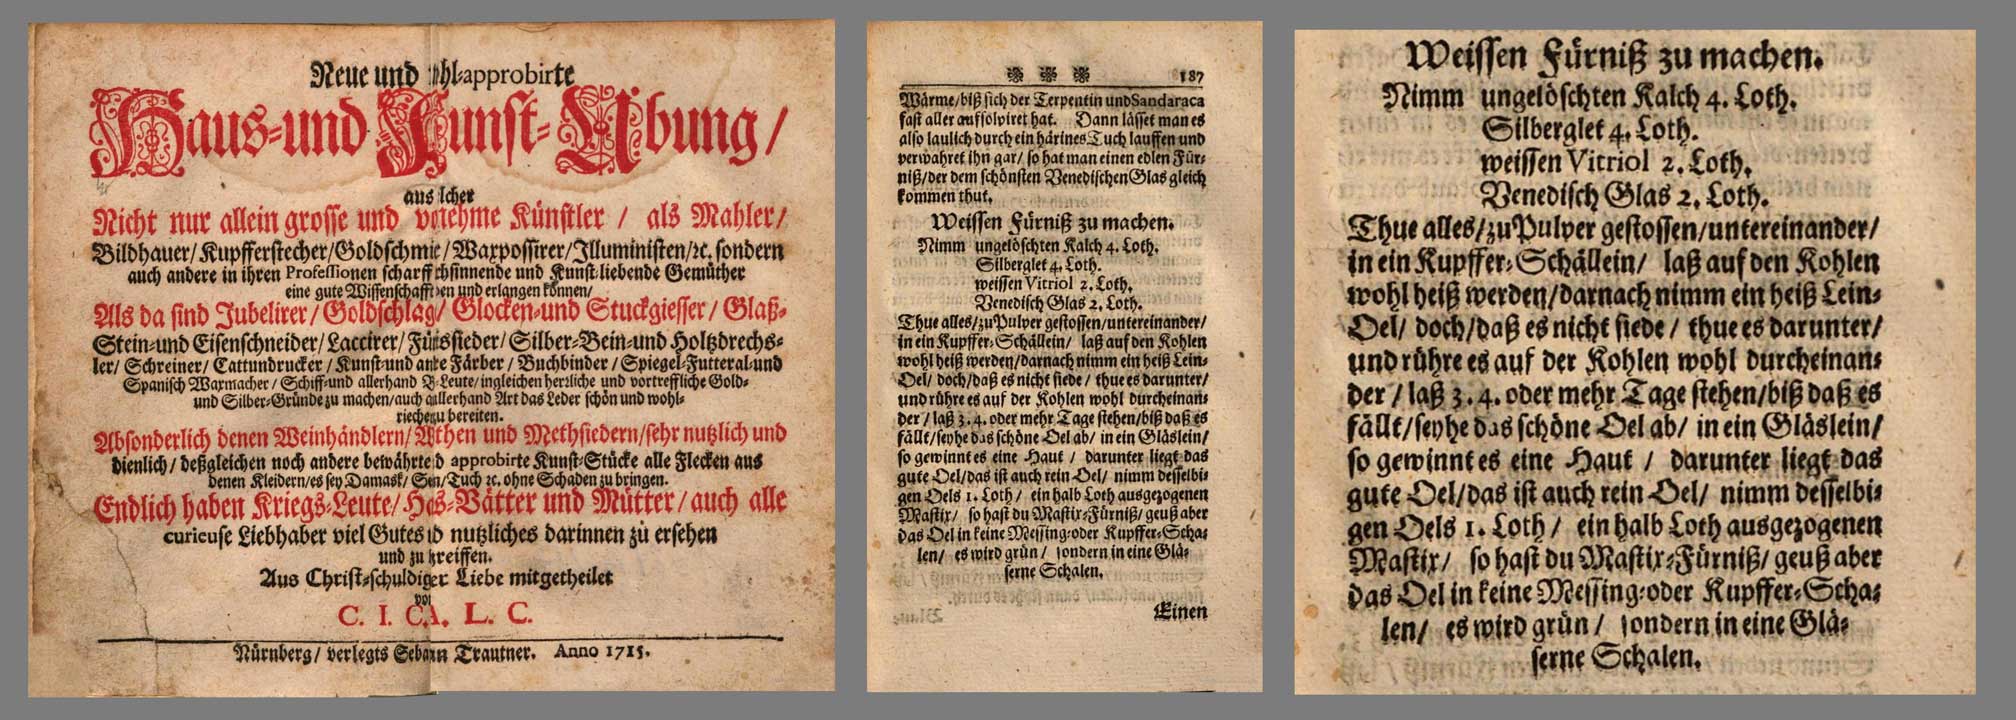 Neue und hl-approbirte
Haus- und Kunst-Ubung /
aus lcher
Nicht nur allein grosse und vornehme Künstler / als Mahler /
Bildhauer / Kupfferstecher / Goldschmie / Waxpossirer / Illuministen / ꝛc. sondern
auch andere in ihren Professionen scharff hsinnende und Kunst-liebende Gemüther
eine gute Wissenschafft en und erlangen können /
Als da sind Jubelirer / Goldschlag / Glocken- und Stuckgiesser / Glaß-
Stein- und Eisenschneider / Laccirer / Fürnissieder / Silber-Bein- und Holtzdrechs-
ler / Schreiner / Cattundrucker / Kunst- und andre Färber / Buchbinder / Spiegel-Futteral- und
Spanisch Waxmacher / Schiff- und allerhand -Leute / ingleichen herzliche und vortreffliche Gold-
und Silber-Gründe zu machen / auch allerhand Art das Leder schön und wohl-
riechend zu bereiten.
Absonderlich denen Weinhändlern / Wirthen und Methsiedern / sehr nutzlich und
dienlich / deßgleichen noch andere bewährte d approbirte Kunst-Stücke alle Flecken aus
denen Kleidern / es sey Damask / Tuch ꝛc. ohne Schaden zu bringen.
Endlich haben Kriegs-Leute / Haus-Vätter und Mütter / auch alle
curieuse Liebhaber viel Gutes d nutzliches darinnen zu ersehen
und zu ergreiffen.
Aus Christ-schuldiger Liebe mitgetheilet
von
C. I. C. A. L. C.
Nürnberg / verlegts Trautner. Anno 1715.
187
Wärme / biß sich der Terpentin und Sandaraca
fast aller aufsolviret hat. Dann lässet man es
also laulich durch ein härines Tuch lauffen und
verwahret ihn gar / so hat man einen edlen Für-
niß / der dem schönsten Venedischen Glas gleich
kommen thut.
Weissen Fürniß zu machen.
Nimm ungelöschten Kalch 4. Loth.
Silberglet 4. Loth.
weissen Vitriol 2. Loth.
Venedisch Glas 2. Loth.
Thue alles / zu Pulver gestossen / untereinander /
in ein Kupffer-Schällein / laß auf den Kohlen
wohl heiß werden / darnach nimm ein heiß Lein-
Oel / doch / daß es nicht siede / thue es darunter /
und rühre es auf der Kohlen wohl durcheinan-
der / laß 3. 4. oder mehr Tage stehen / biß daß es
fällt / seyhe das schöne Oel ab / in ein Gläslein /
so gewinnt es eine Haut / darunter liegt das
gute Oel / das ist auch rein Oel / nimm desselbi-
gen Oels 1. Loth / ein halb Loth ausgezogenen
Mastix / so hast du Mastix-Fürniß / geuß aber
das Oel in keine Messing- oder Kupffer-Scha-
len / es wird grün / sondern in eine Glä-
serne Schalen.
Einen
Weissen Fürniß zu machen.
Nimm ungelöschten Kalch 4. Loth.
Silberglet 4. Loth.
weissen Vitriol 2. Loth.
Venedisch Glas 2. Loth.
Thue alles / zu Pulver gestossen / untereinander /
in ein Kupffer-Schällein / laß auf den Kohlen
wohl heiß werden / darnach nimm ein heiß Lein-
Oel / doch / daß es nicht siede / thue es darunter /
und rühre es auf der Kohlen wohl durcheinan-
der / laß 3. 4. oder mehr Tage stehen / biß daß es
fällt / seyhe das schöne Oel ab / in ein Gläslein /
so gewinnt es eine Haut / darunter liegt das
gute Oel / das ist auch rein Oel / nimm desselbi-
gen Oels 1. Loth / ein halb Loth ausgezogenen
Mastix / so hast du Mastix-Fürniß / geuß aber
das Oel in keine Messing- oder Kupffer-Scha-
len / es wird grün / sondern in eine Glä-
serne Schalen.